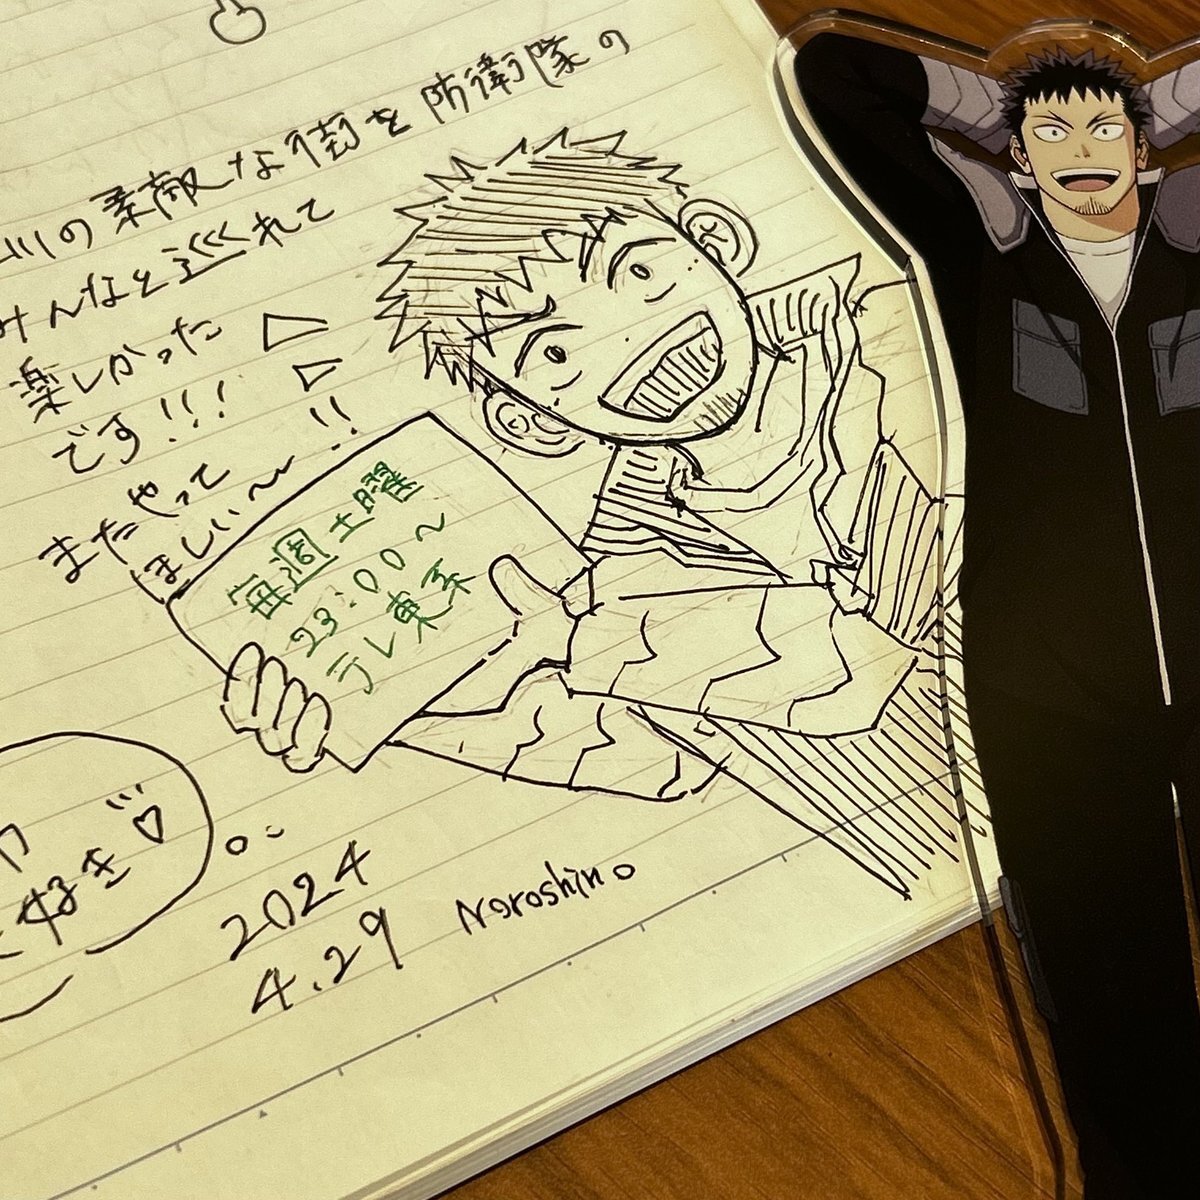 川の素敵な街を防衛隊の
みんなと巡れて
楽しかった
です!!!
またやって
ほしい〜!!
毎週土曜
23:00〜
テレ東系
好き♡
2024
4.29
Noroshin。